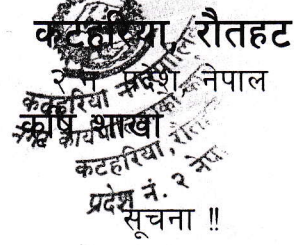 कटहरिया, रौतहट
२ नं प्रदेश नेपाल
कृषि शाखा
कटहरिया, रौत
प्रदेश नं. २ नेपा
सूचना !!